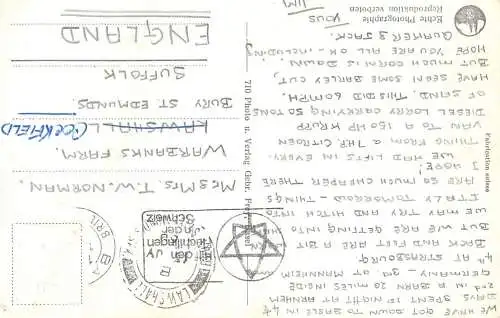 WE HAVE GOT DOWN TO HERE IN 4½
DAYS SPENT 1ST NIGHT AT ARNHEM
2ND IN A BARN 20 MILES INSIDE
GERMANY – 3RD AT MANNHEIM
4TH STRASBOURG.
BACK AND FEET ARE A BIT
BUT WE ARE GETTING INTO THE
WAY MAY TRY AND HITCH INTO
ITALY TOMORROW – THINGS
ARE SO MUCH CHEAPER THERE
I HOPE!
WE HAD LIFTS IN EVERY-
THING FROM A 7HP. CITROEN
VAN TO A 150 HP KRUPP
DIESEL LORRY CARRYING 50 TONS
OF SAND. THIS DID 60 MPH.
HAVE SEEN SOME BARLEY CUT,
BUT MUCH CORN IS DOWN
HOPE YOU ARE ALL OK – INCLUDING
QUAKER & JACK.
YOUS
TIM
MR & MRS. T. W. NORMAN.
WARBANKS FARM.
KAWSHALL COCKFIELD
BURY ST. EDMUNDS.
SUFFOLK
ENGLAND
Helft den
Flüchtlingen
in der
Schweiz
710 Photo u. Verlag Gebr.
Fabrication suisse
Echte Photographie
Reproduktion verboten